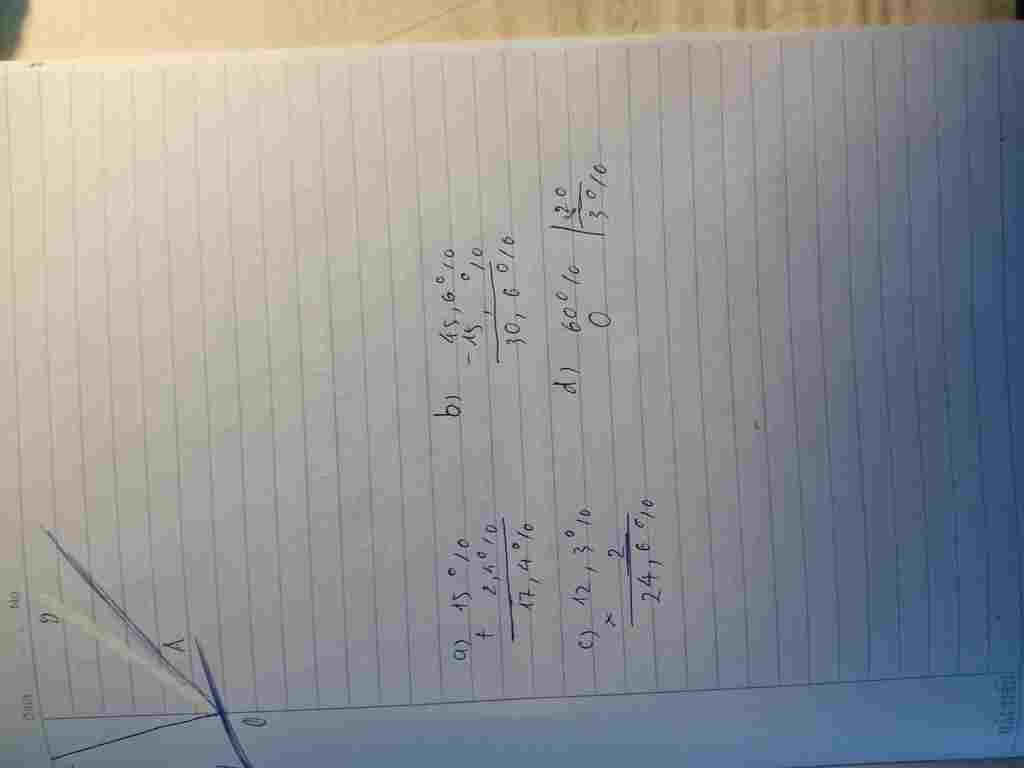 No
a) 15% b) 45,6%
+ 2,4% - 15, %
17,4% 30,6%
c) 12,3% d) 60% 20
x 2 0 3%
24,6%